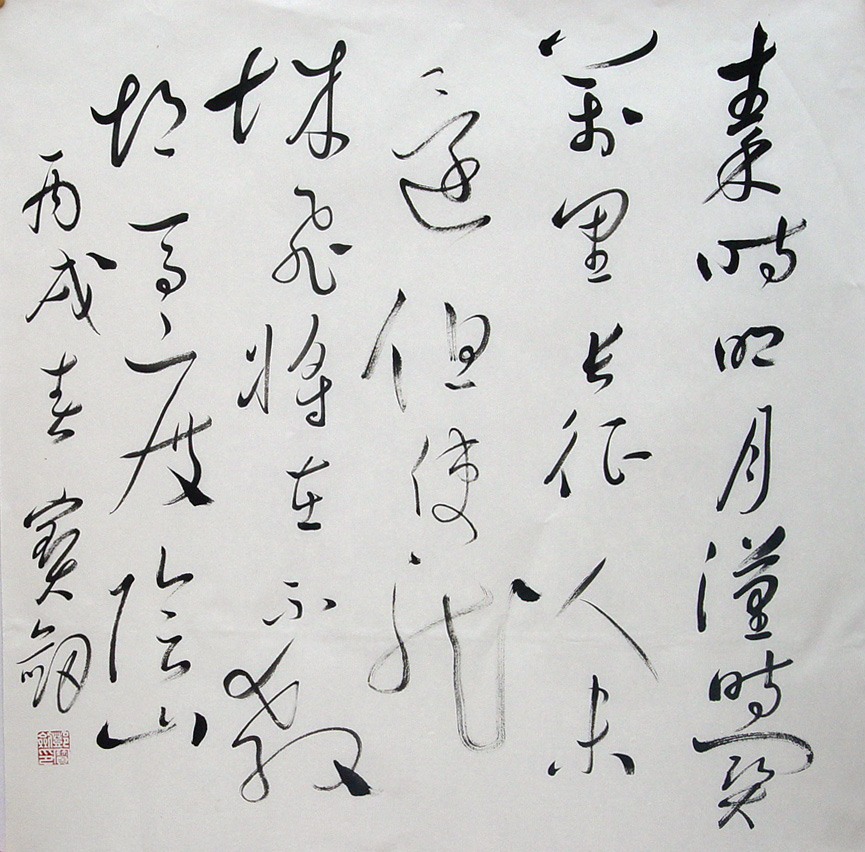 秦時明月漢時關
萬里長征人未
還但使龍
城飛將在不教
胡馬度陰山
丙戌春 寶劒